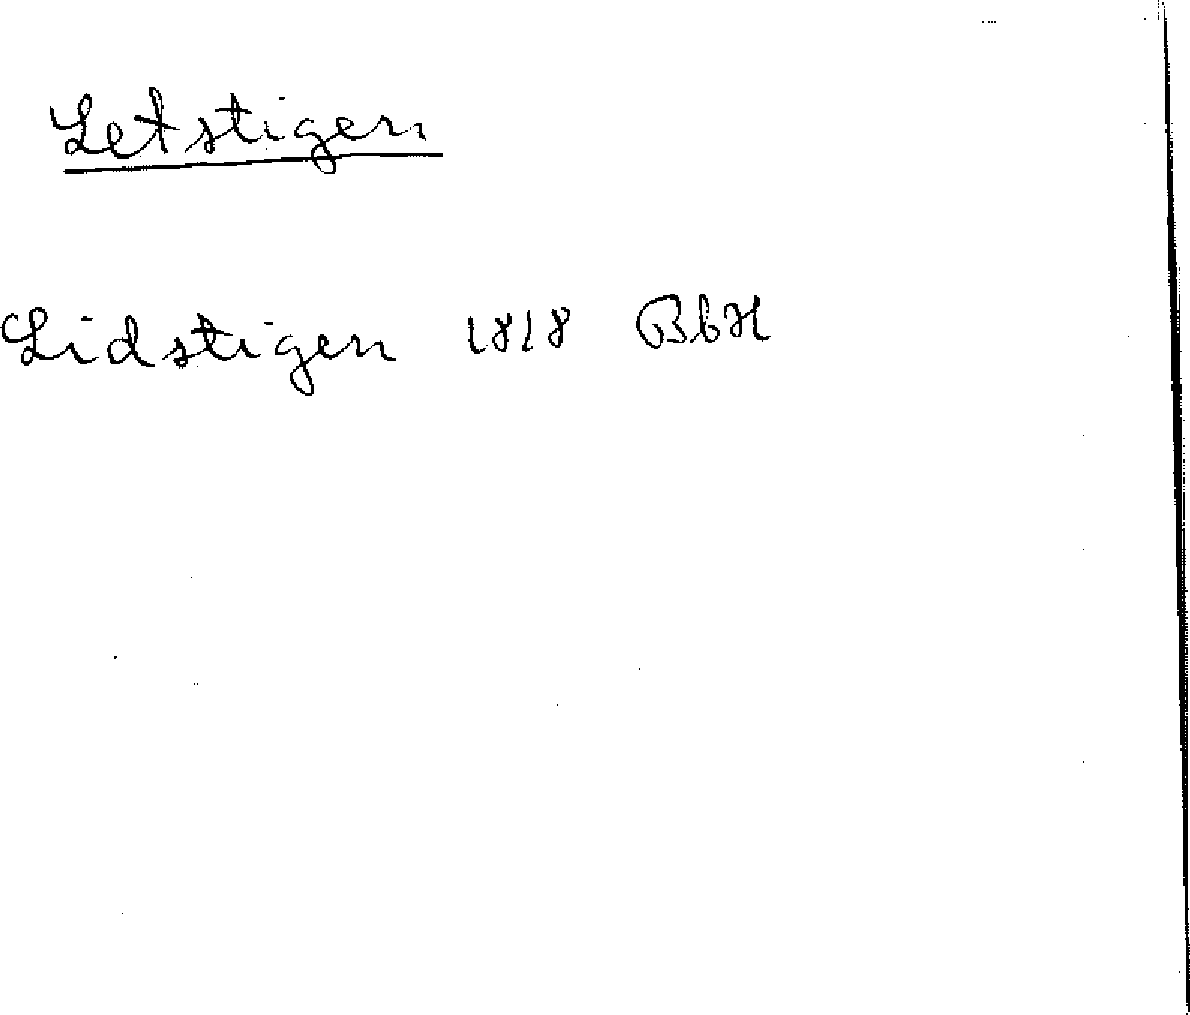 Letstigen
Lidstigen 1818 BbH